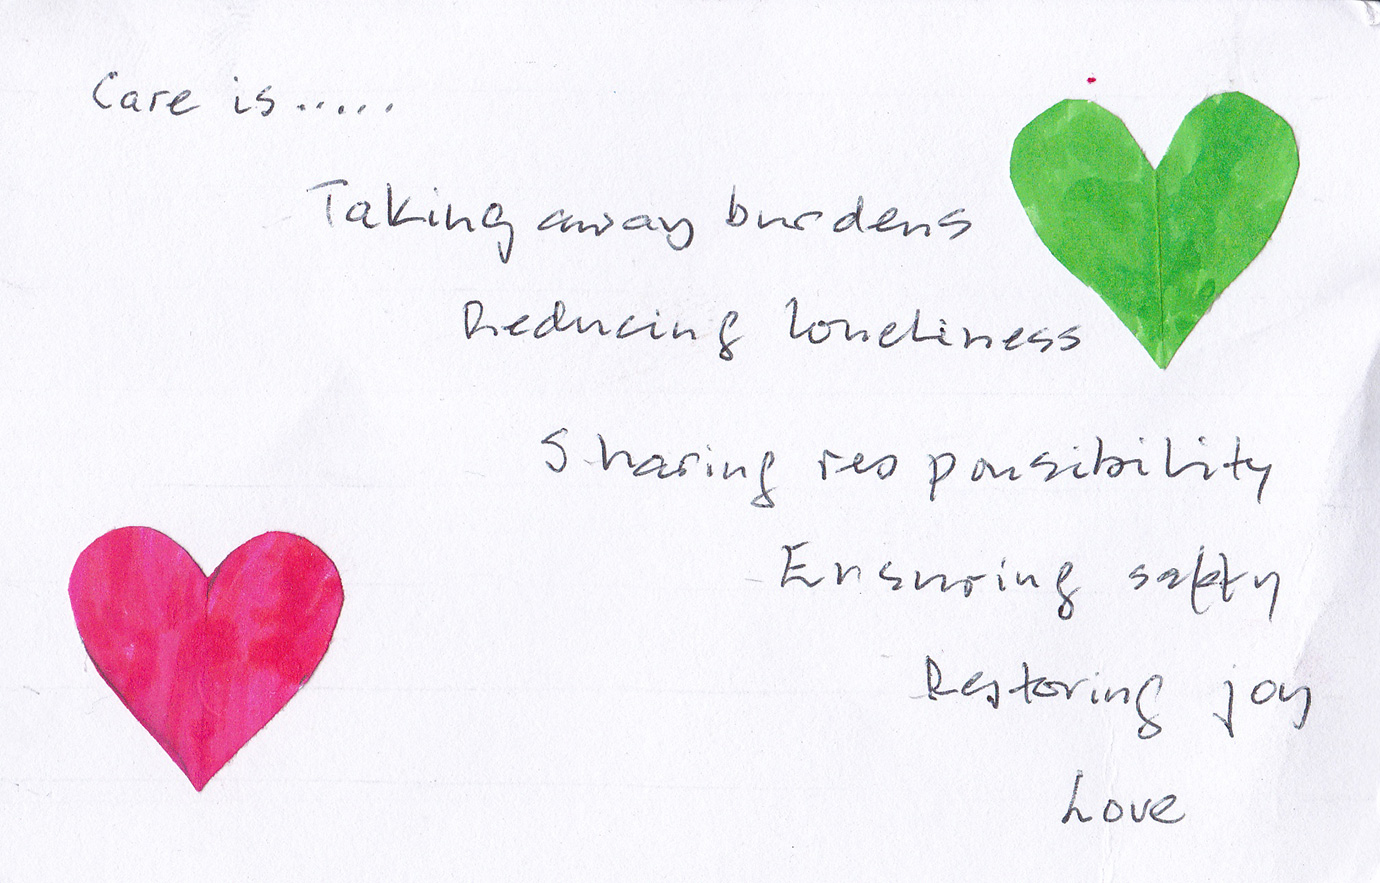 Care is.....
Taking away burdens
Reducing loneliness
Sharing responsibility
Ensuring safty
Restoring joy
Love